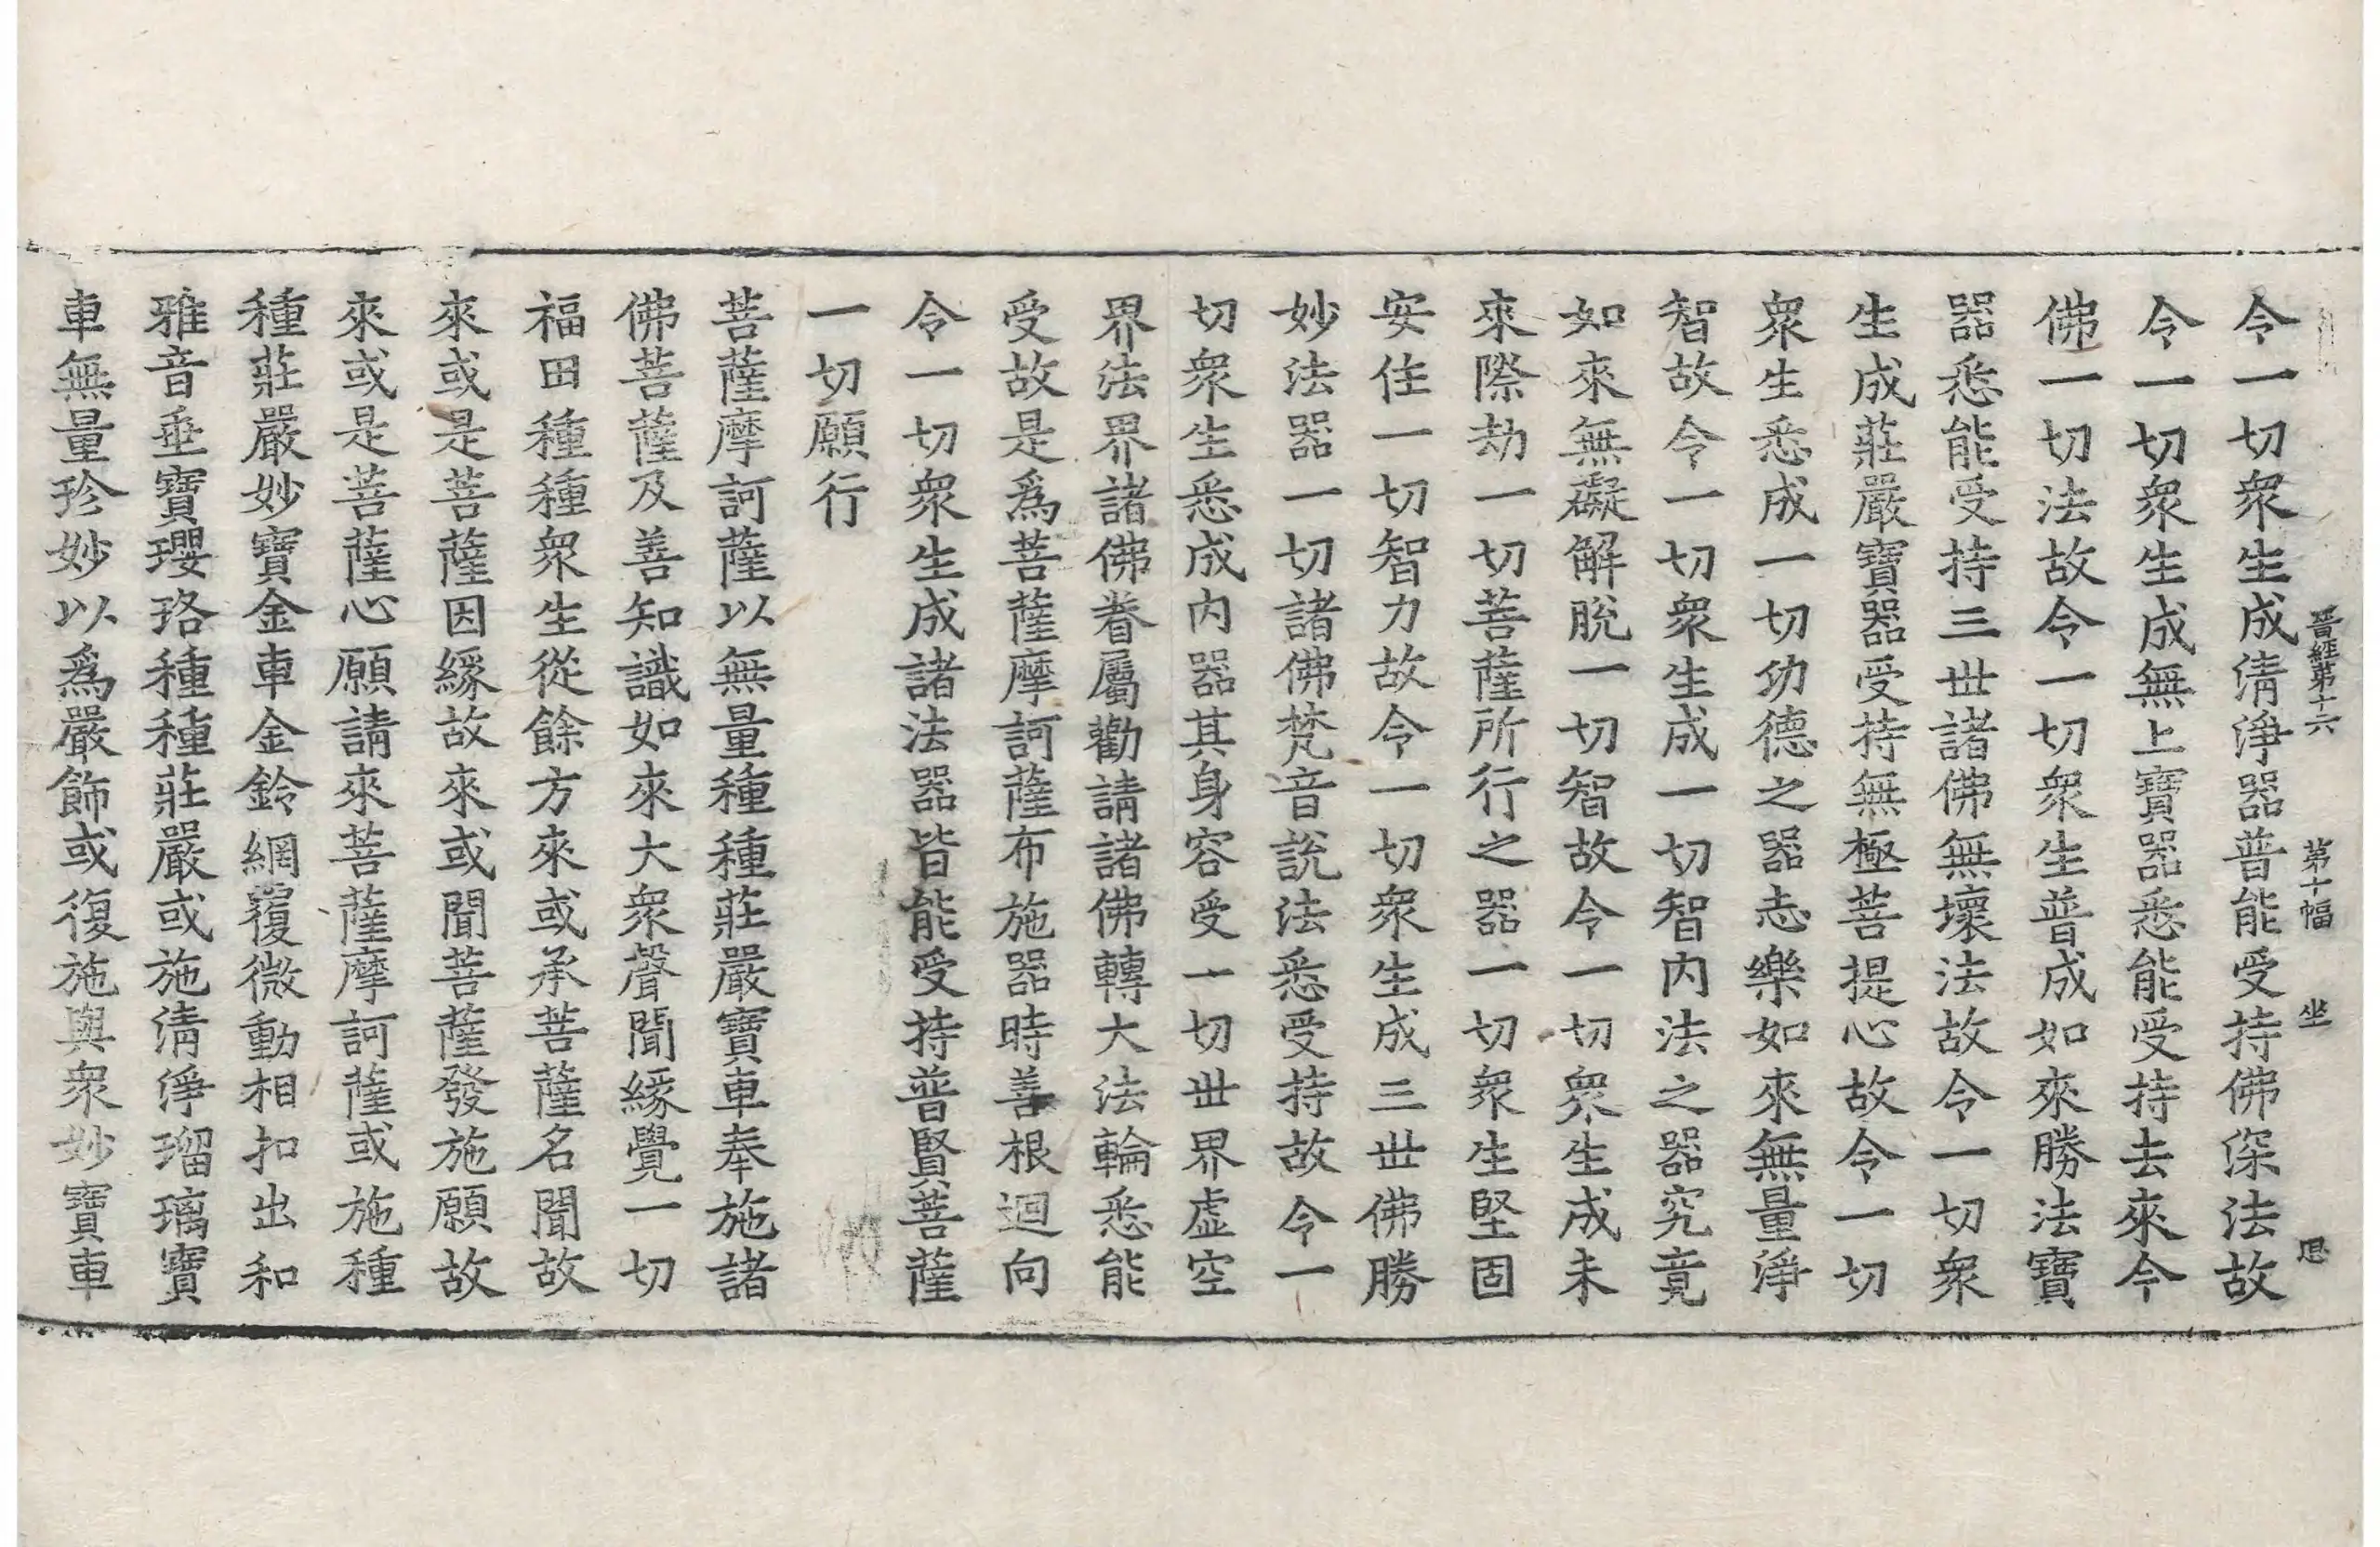 晉經第十六　第十幅　坐　恩
令一切衆生成淸淨器普能受持佛深法故
令一切衆生成無上寶器悉能受持去來今
佛一切法故令一切衆生普成如來勝法寶
器悉能受持三世諸佛無壞法故令一切衆
生成莊嚴寶器受持無極菩提心故令一切
衆生悉成一切功德之器志樂如來無量淨
智故令一切衆生成一切智內法之器究竟
如來無礙解脫一切智故令一切衆生成未
來際劫一切菩薩所行之器一切衆生堅固
安住一切智力故令一切衆生成三世佛勝
妙法器一切諸佛梵音說法悉受持故令一
切衆生悉成内器其身容受一切世界虛空
界法界諸佛眷屬勸請諸佛轉大法輪悉能
受故是爲菩薩摩訶薩布施器時善根迴向
令一切衆生成諸法器皆能受持普賢菩薩
一切願行
菩薩摩訶薩以無量種種莊嚴寶車奉施諸
佛菩薩及善知識如來大衆聲聞緣覺一切
福田種種衆生從餘方來或承菩薩名聞故
來或是菩薩因緣故來或聞菩薩發施願故
來或是菩薩心願請來菩薩摩訶薩或施種
種莊嚴妙寶金車金鈴網覆微動相扣出和
雅音垂寶瓔珞種種莊嚴或施淸淨瑠璃寶
車無量珍妙以爲嚴飾或復施與衆妙寶車